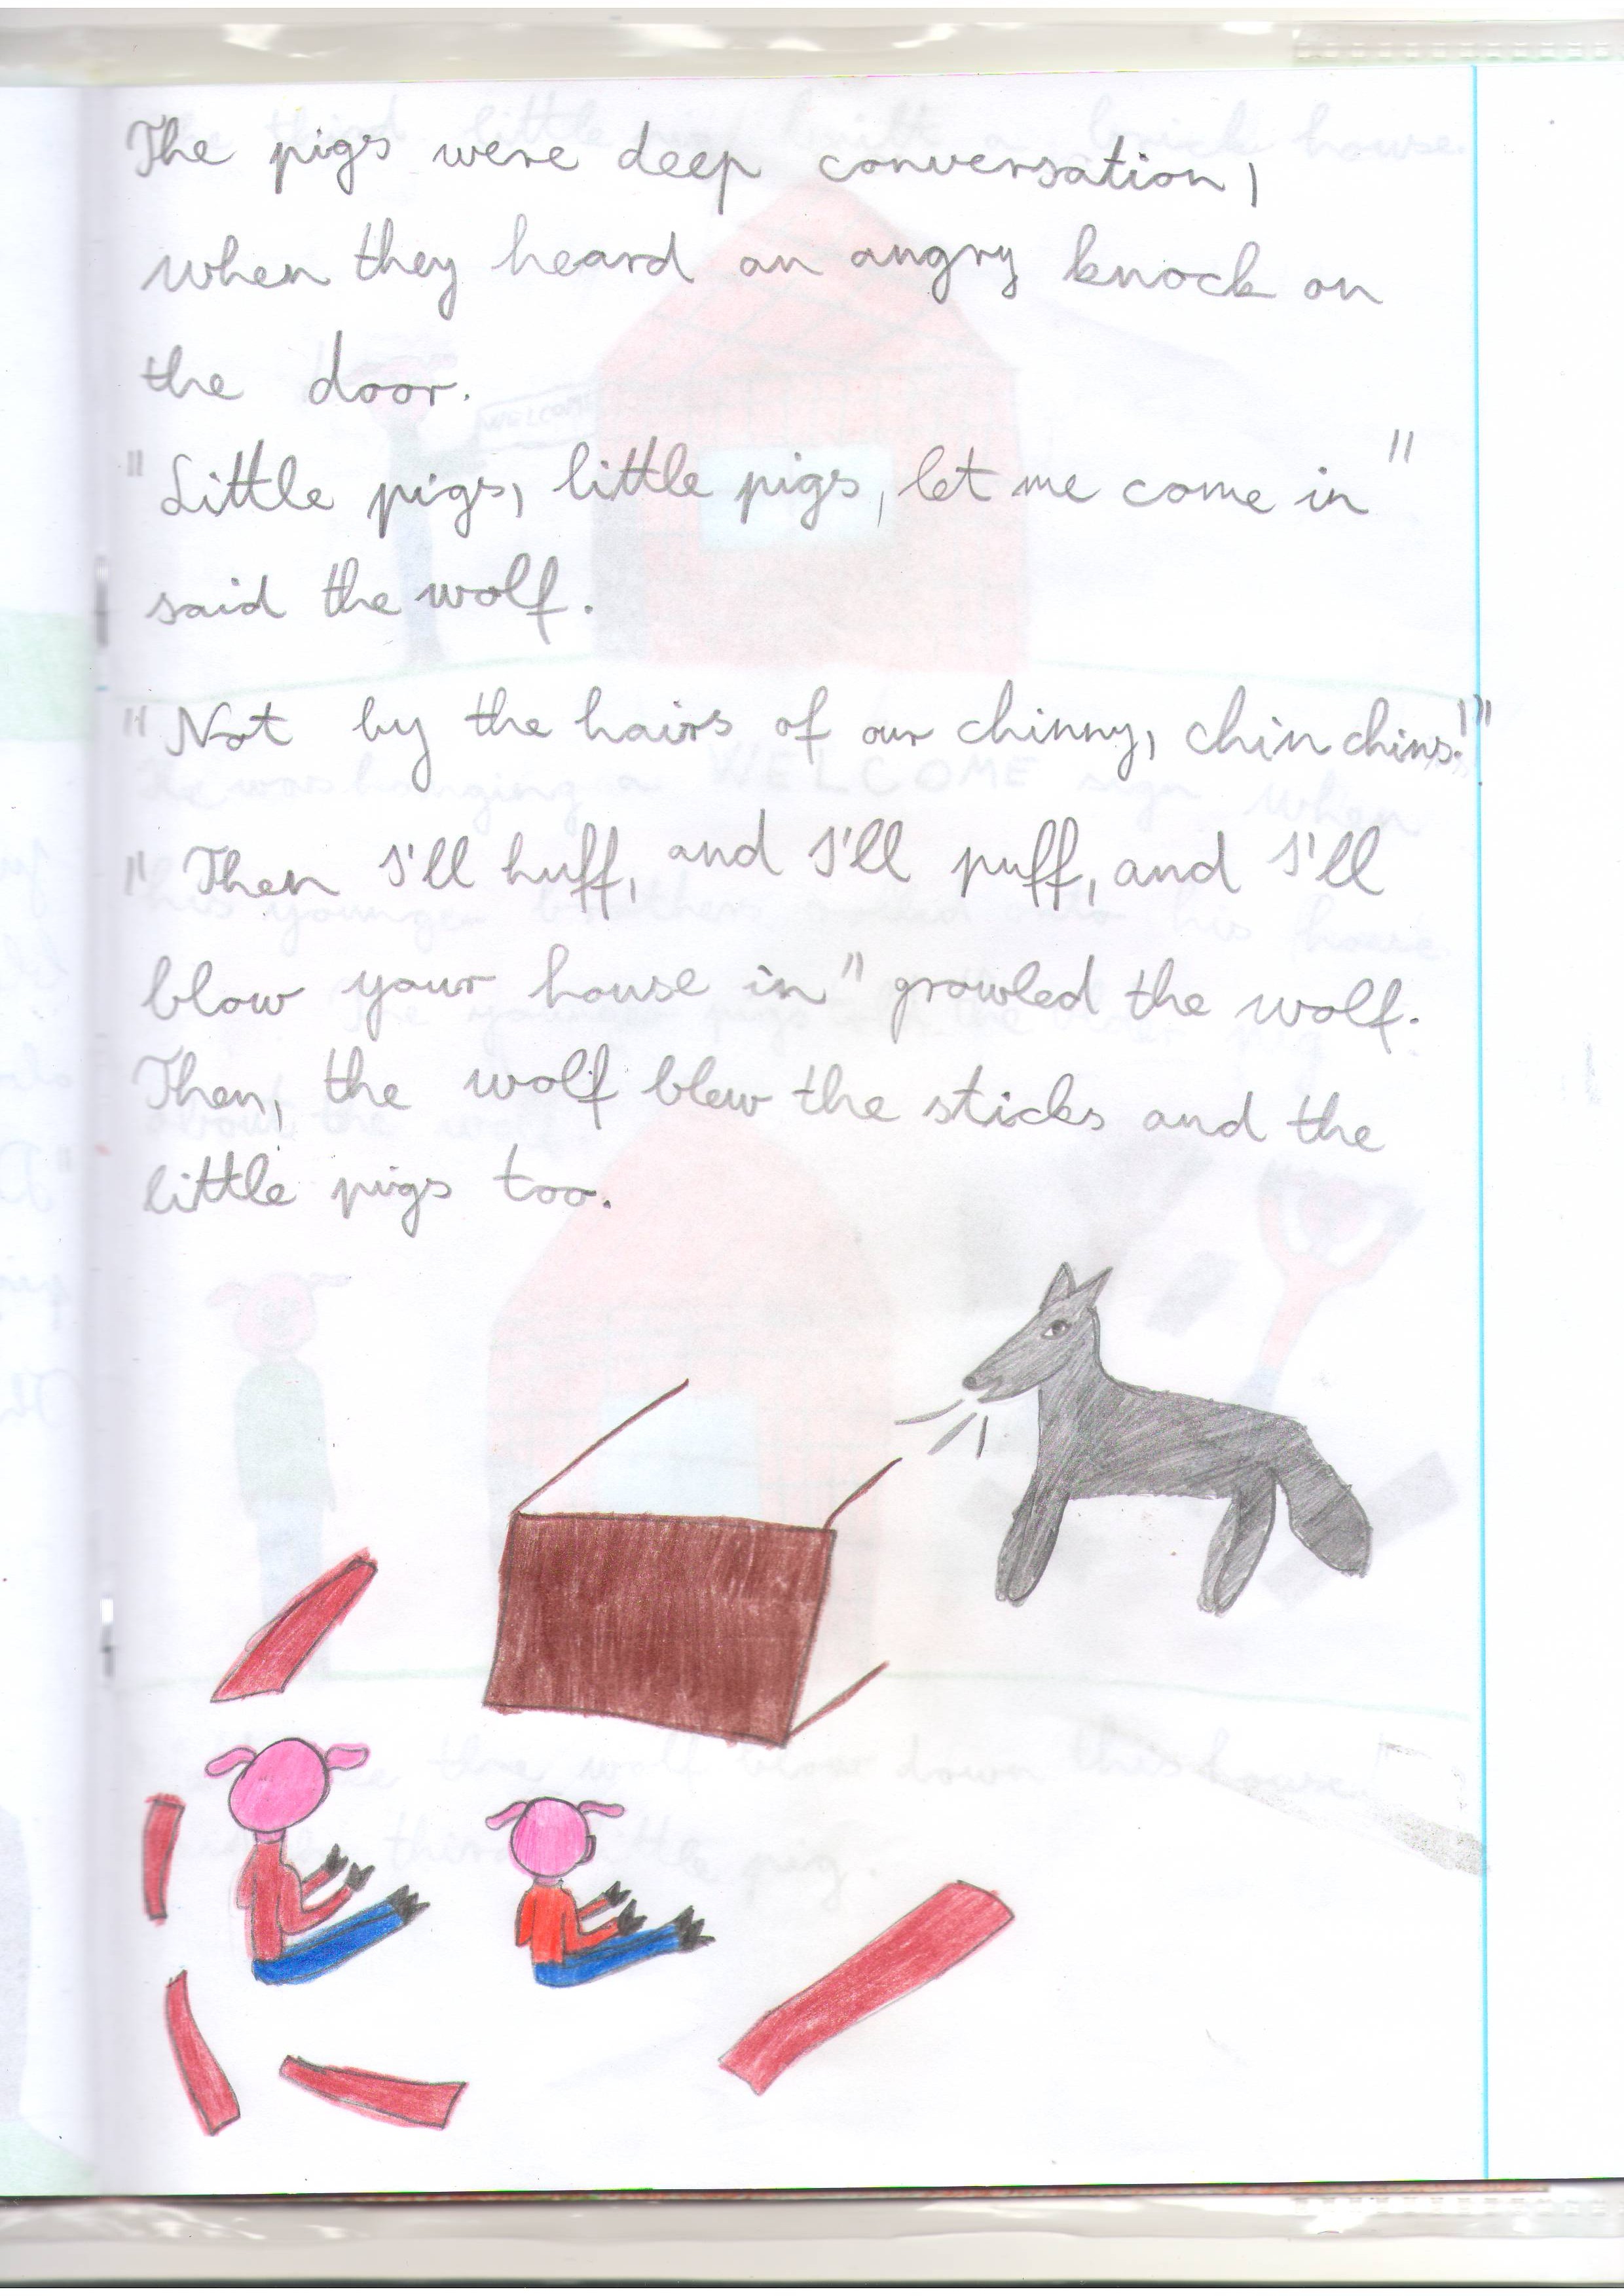 The pigs were deep conversation,
when they heard an angry knock on
the door.
"Little pigs, little pigs, let me come in"
said the wolf.
"Not by the hairs of our chinny, chin chins!"
"Then I'll huff, and I'll puff, and I'll
blow your house in" growled the wolf.
Then, the wolf blew the sticks and the
little pigs too.